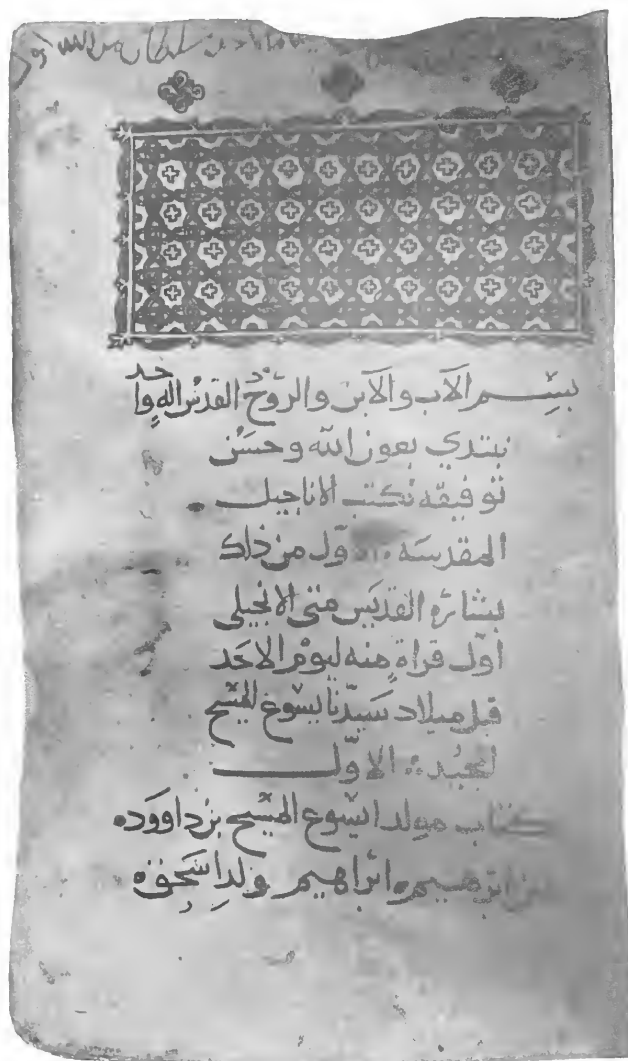 بسم الاب والابن والروح القدس اله واحد
نبتدي بعون الله وحسن
توفيقه نكتب الاناجيل
المقدسه الاول من ذلك
بشاره القديس متى الانجيلي
اول قراة منه ليوم الاحد
قبل ميلاد سيدنا يسوع المسيح
لمجيده الاول
كتاب مولد ايسوع المسيح بن داوود
بن ابرهيم ابراهيم ولد اسحق